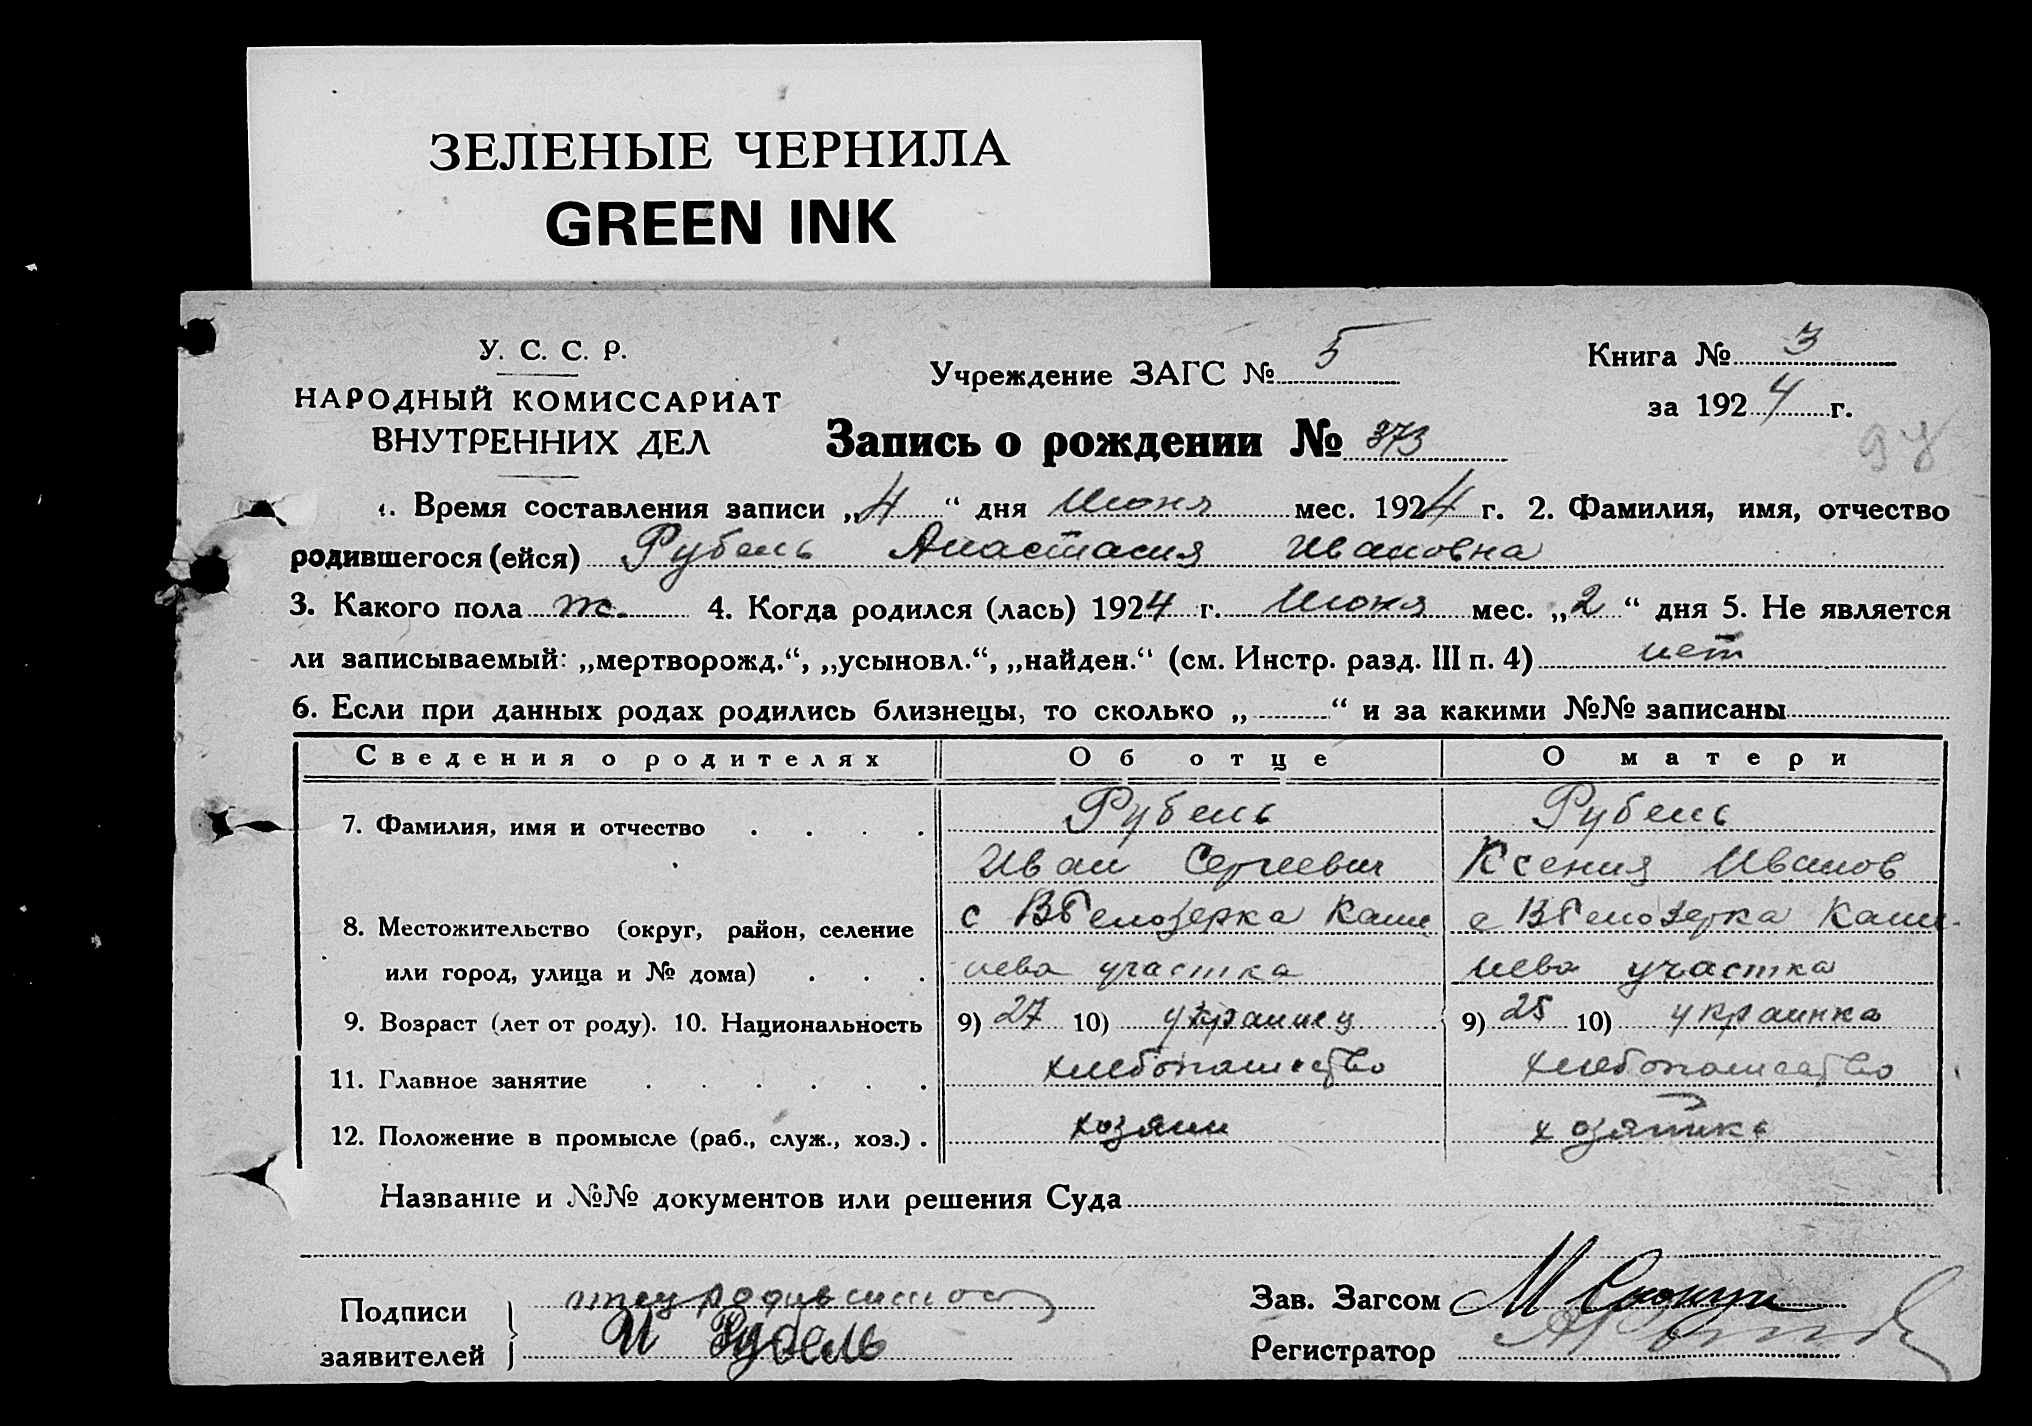 ЗЕЛЕНЫЕ ЧЕРНИЛА
GREEN INK
У. С. С. Р.
НАРОДНЫЙ КОМИССАРИАТ
ВНУТРЕННИХ ДЕЛ
Учреждение ЗАГС № 5
Книга № 3
за 1924 г.
Запись о рождении № 373
98
1. Время составления записи „4“ дня Июня мес. 1924 г. 2. Фамилия, имя, отчество
родившегося (ейся) Рубель Анастасия Ивановна
3. Какого пола ж. 4. Когда родился (лась) 1924 г. Июня мес. „2“ дня 5. Не является
ли записываемый: „мертворожд.“, „усыновл.“, „найден.“ (см. Инстр. разд. III п. 4) нет
6. Если при данных родах родились близнецы, то сколько „ “ и за какими №№ записаны
Сведения о родителях Об отце О матери
7. Фамилия, имя и отчество Рубель Рубель
Иван Сергеевич Ксения Иванов
8. Местожительство (округ, район, селение с ВБелозерка Каме с ВБелозерка Каме-
или город, улица и № дома) нева участка нева участка
9. Возраст (лет от роду). 10. Национальность 9) 27 10) украинец 9) 25 10) украинка
11. Главное занятие хлебопашество хлебопашество
12. Положение в промысле (раб., служ., хоз.) хозяин хозяйка
Название и №№ документов или решения Суда
Подписи
заявителей
И Рубель
Зав. Загсом М
Регистратор